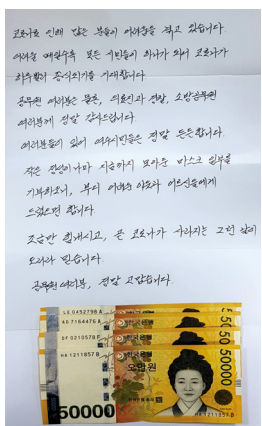 코로나로 인해 많은 분들이 어려움을 겪고 있습니다.
어려울 때일수록 모든 시민들이 하나가 되어 코로나가
하루빨리 종식되기를 기대합니다.
공무원 여러분은 물론, 의료진과 경찰, 소방공무원
여러분께 정말 감사드립니다.
여러분들이 있어 여수시민들은 정말 든든합니다.
작은 정성이나마 지금까지 모아온 마스크 일부를
기부하오니, 부디 어려운 이웃과 어르신들에게
드렸으면 합니다.
조금만 힘내시고, 곧 코로나가 사라지는 그런 날이
오리라 믿습니다.
공무원 여러분, 정말 고맙습니다.
LE 0452798 A
AD 7164476 A
DF 0210578
HA 1211857 B
한국은행
오만원
50000
50000
HA 1211857 B